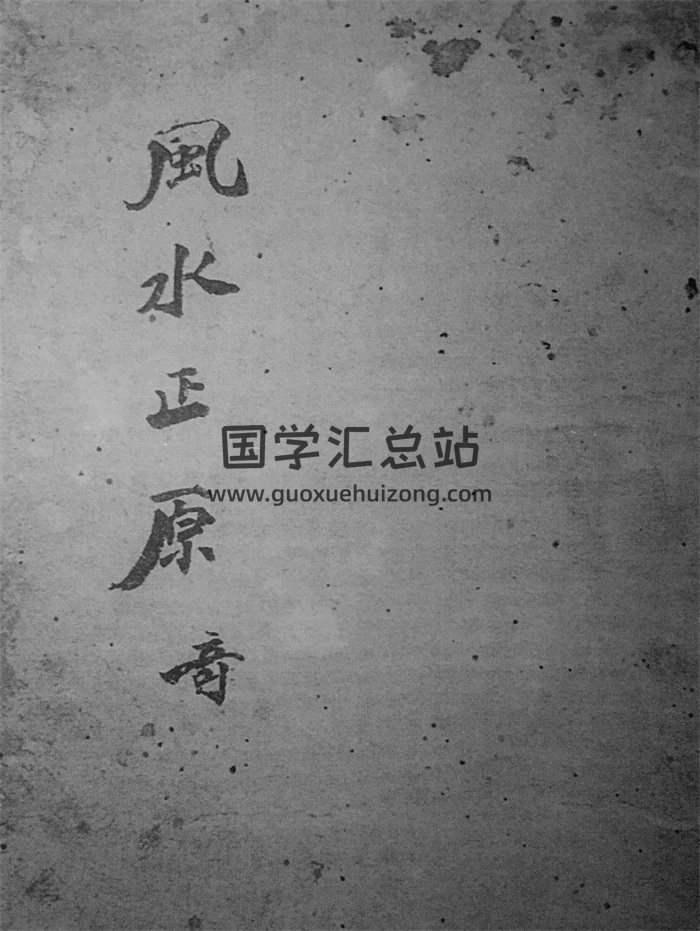 風水正原
国学汇总站
www.guoxuehuizong.com